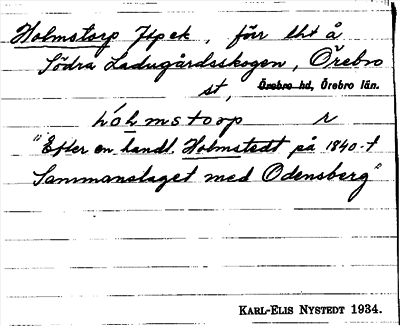 Holmstorp Jfpek, förr lht å
Södra Ladugårdsskogen, Örebro
st, Örebro hd, Örebro län.
hólmstorp r
"Efter en handl. Holmstedt på 1840-t
Sammanslaget med Odensberg"
KARL-ELIS NYSTEDT 1934.